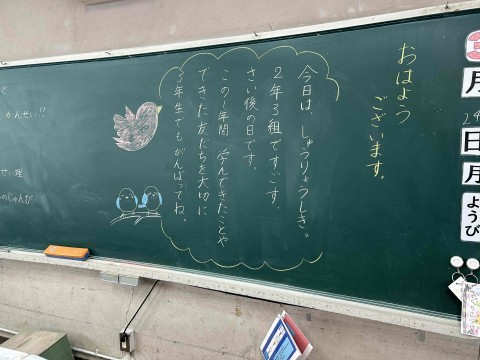 おはよう
ございます。
今日は、しゅうりょうしき。
2年3組ですごす、
さい後の日です。
この1年間、学んできたことや
できた友だちを大切に
3年生でもがんばってね。
月
24
日
月
ようび
と
かんせい!!
せい理
のじゅんび